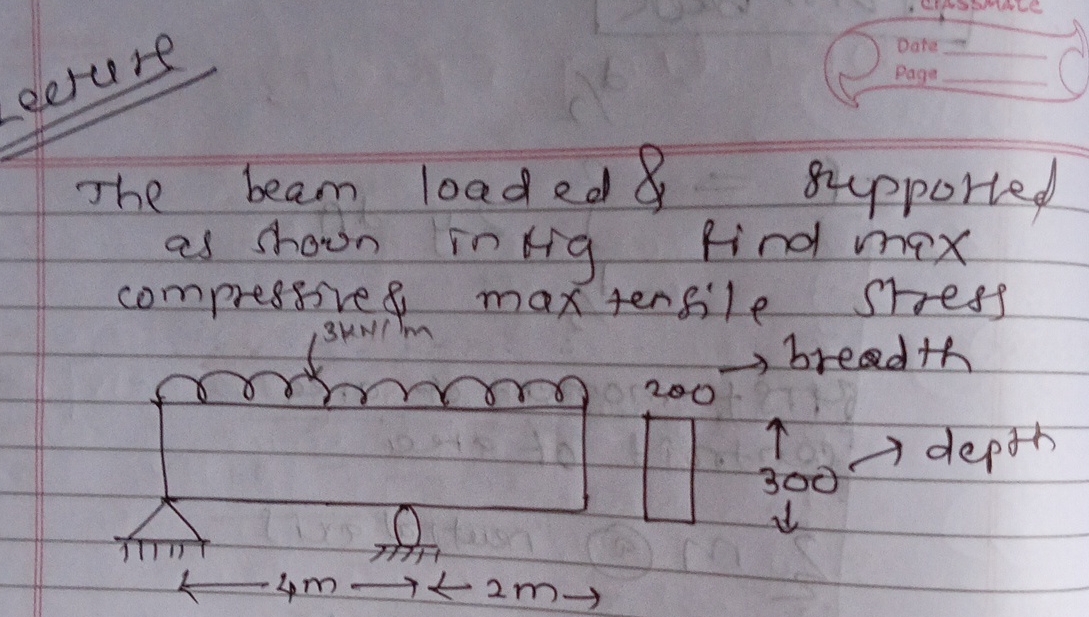 classmate
Date
Page
Lecture
The beam loaded & supported
as shown in fig find max
compressive & max tensile stress
3KN/m
200 → breadth
300 → depth
4m 2m